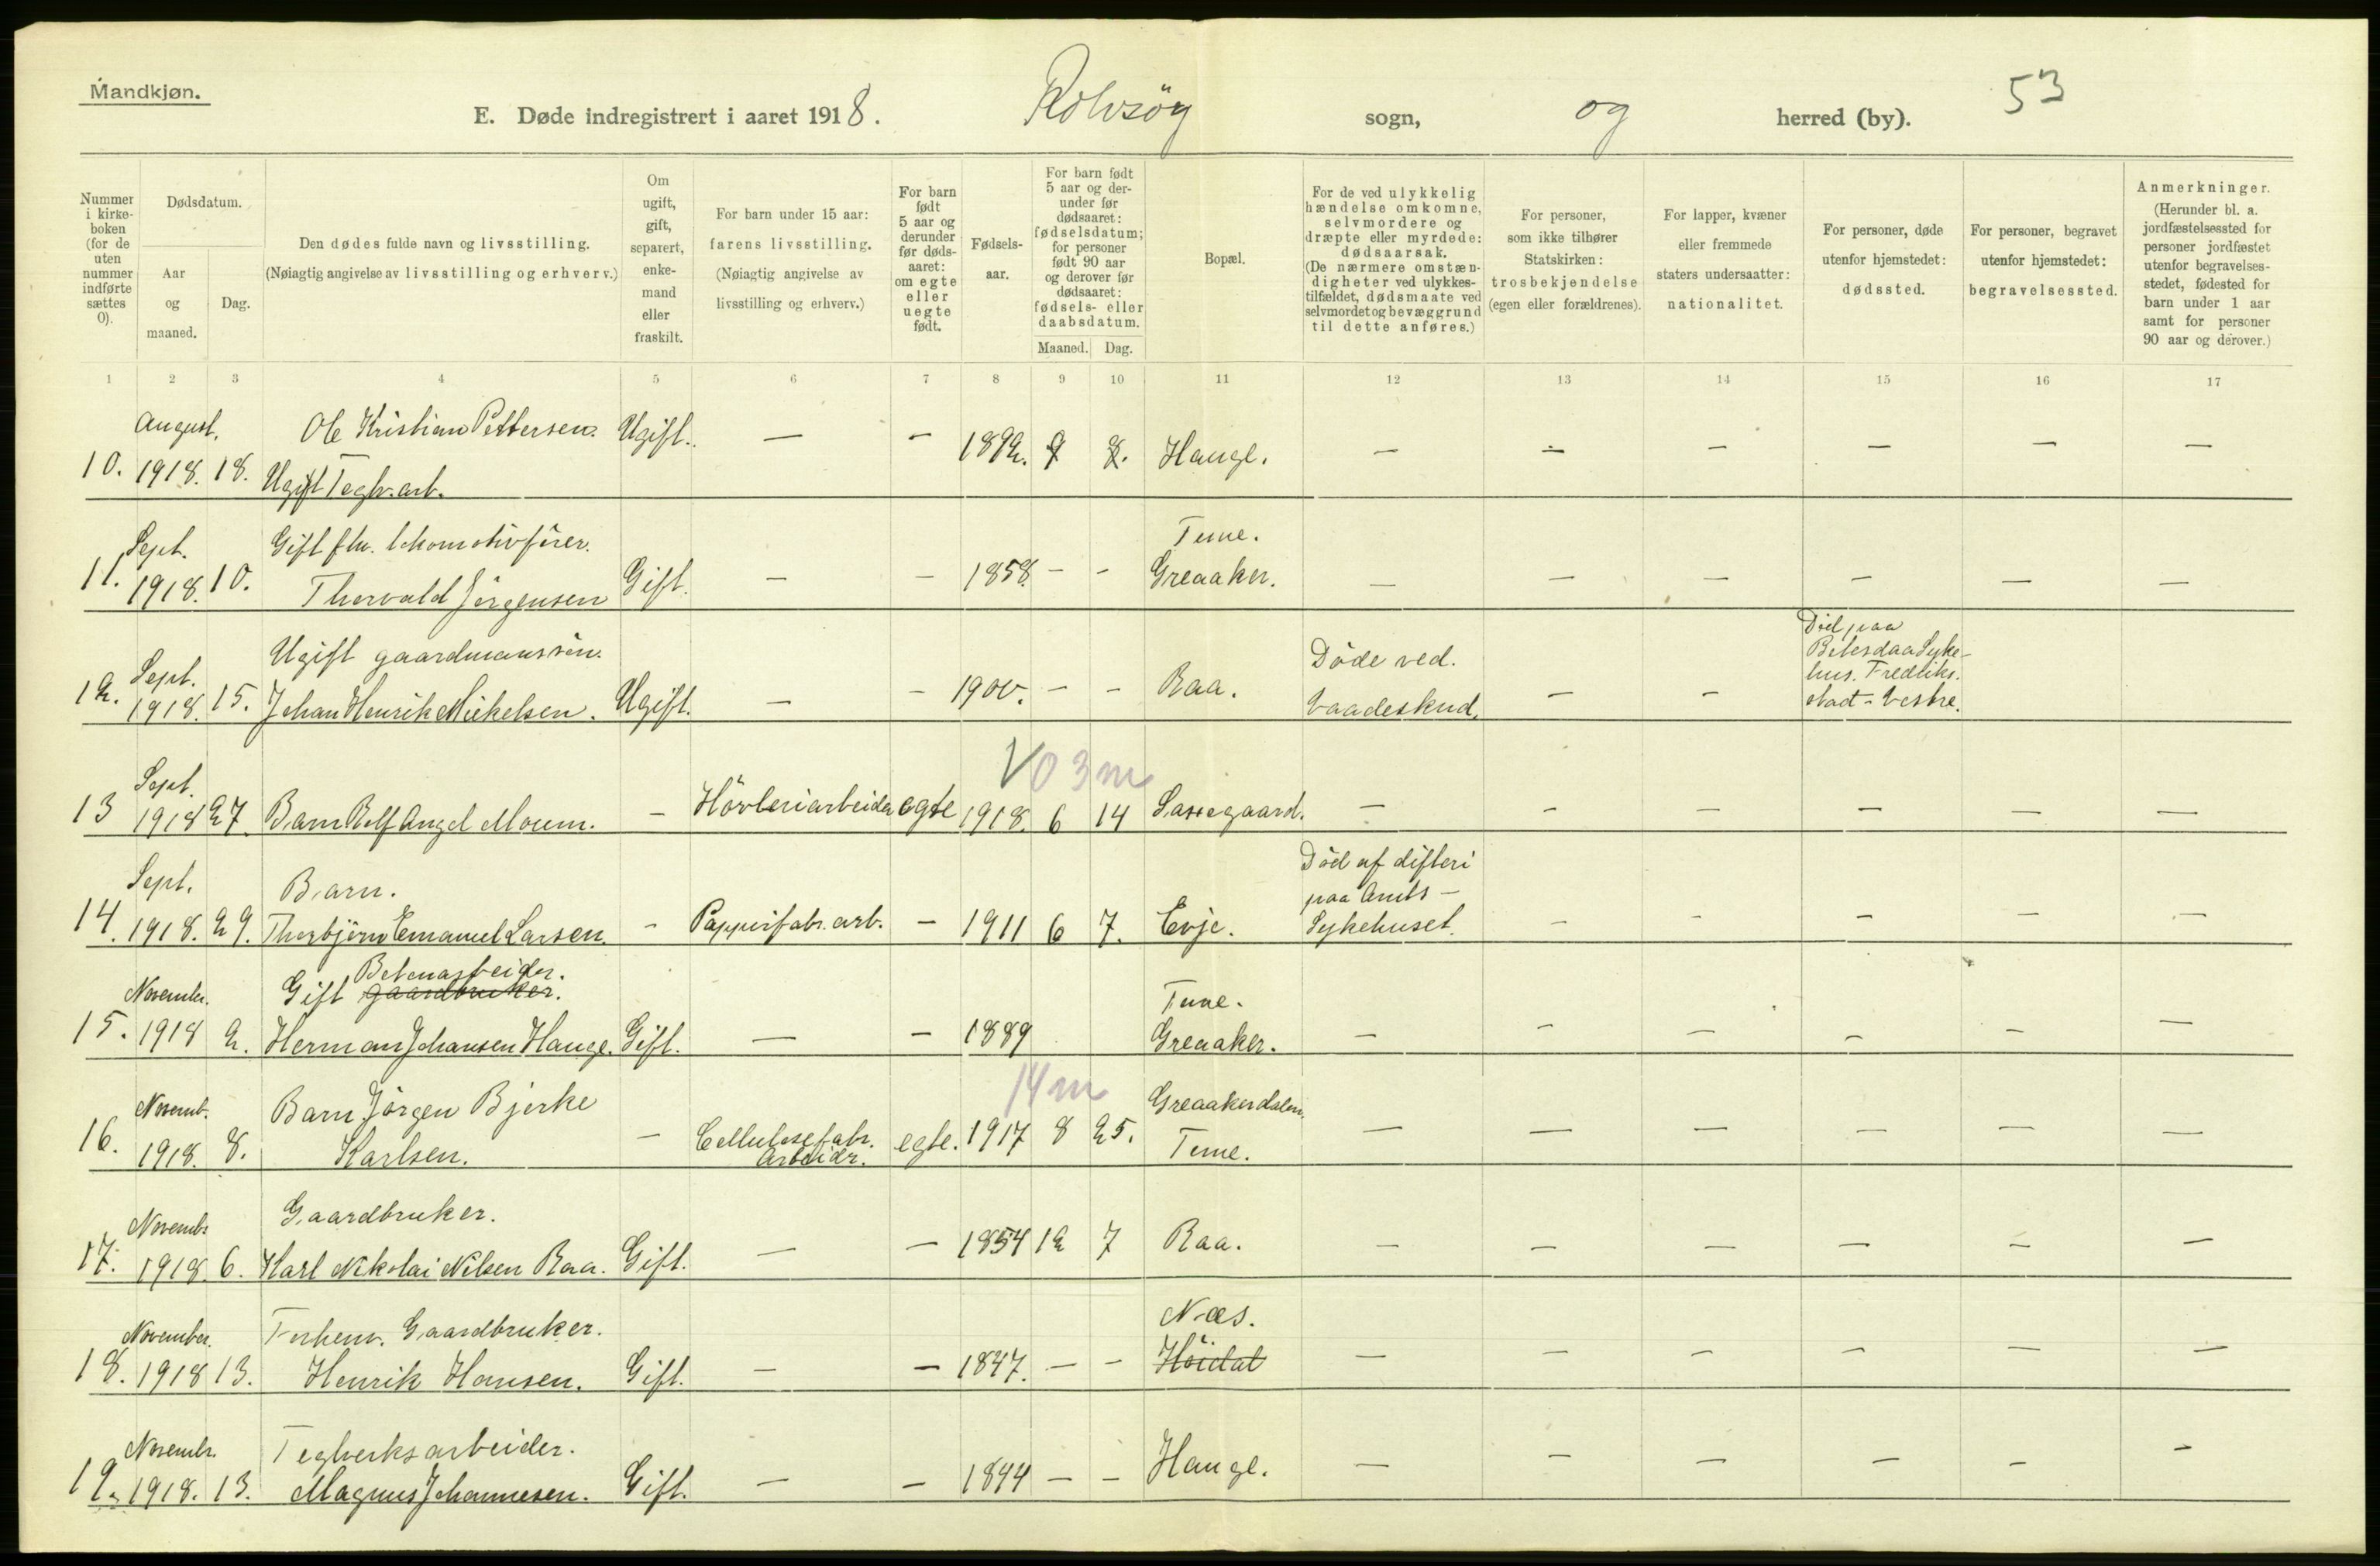 Mandkjøn.
E. Døde indregistrert i aaret 1918. Rolvsöy sogn, og herred (by). 53
Nummer i kirkeboken (for de uten nummer indførte sættes 0).
Dødsdatum.
Aar og maaned.
Dag.
Den dødes fulde navn og livsstilling.
(Nøiagtig angivelse av livsstilling og erhverv.)
Om ugift, gift, separert, enkemand eller fraskilt.
For barn under 15 aar: farens livsstilling.
(Nøiagtig angivelse av livsstilling og erhverv.)
For barn født 5 aar og derunder før dødsaaret: om egte eller uegte født.
Fødselsaar.
For barn født 5 aar og derunder før dødsaaret: fødselsdatum; for personer født 90 aar og derover før dødsaaret: fødsels- eller daabsdatum.
Maaned. Dag.
Bopæl.
For de ved ulykkelig hændelse omkomne, selvmordere og dræpte eller myrdede: dødsaarsak.
(De nærmere omstændigheter ved ulykkestilfældet, dødsmaate ved selvmordet og bevæggrund til dette anføres.)
For personer, som ikke tilhører Statskirken: trosbekjendelse (egen eller forældrenes).
For lapper, kvæner eller fremmede staters undersaatter: nationalitet.
For personer, døde utenfor hjemstedet: dødssted.
For personer, begravet utenfor hjemstedet: begravelsessted.
Anmerkninger.
(Herunder bl. a. jordfæstelsessted for personer jordfæstet utenfor begravelsesstedet, fødested for barn under 1 aar samt for personer 90 aar og derover.)
1 2 3 4 5 6 7 8 9 10 11 12 13 14 15 16 17
August, Ole Kristian Pettersen. Ugift. — — 1892. 9 8. Hauge. — — — — — —
10. 1918. 18. Ugift Teglv. arb.
Sept. Gift fhv. lokomotivförer. Tune.
11. 1918. 10. Thorvald Jörgensen Gift. — — 1858. — — Greaaker. — — — — — —
Ugift gaardmanssön. Döde ved. Död paa
Sept. Betesdaa Syke-
hus. Fredriks.
12. 1918. 15. Johan Henrik Mikelsen. Ugift. — — 1900. — — Raa. Vaadeskud. — — stad - Vestre.
V 0 3 m
Sept.
13 1918 27. Barn Rolf Angel Moum. — Hövleriarbeider egte 1918. 6 14 Sassegaard. — — — — — —
Sept. Barn. Död af difteri
paa Amts-
14. 1918. 29. Thorbjörn Emanuel Larsen. — Pappirfabr. arb. — 1911 6 7. Evje. Sykehuset. — — — — —
Betonarbeider.
November. Gift gaardbruker. Tune.
15. 1918 2. Herman Johansen Hauge. Gift. — — 1889 Greaaker. — — — — — —
14 m
Novemb. Barn Jörgen Bjerke Greaakerdalen.
16. 1918. 8. Karlsen. — Cellulosefabr. Arbeidr. egte. 1917 8 25. Tune. — — — — — —
Novembr Gaardbruker.
17. 1918. 6. Karl Nikolai Nilsen Raa. Gift. — — 1854 12 7 Raa. — — — — — —
November. Forhenv. Gaardbruker. Næs.
18. 1918 13. Henrik Hansen. Gift. — — 1847. — — Höidal — — — — — —
Novembr. Teglverksarbeider.
19. 1918. 13. Magnus Johannesen. Gift. — — 1894 — — Hauge. — — — — — —